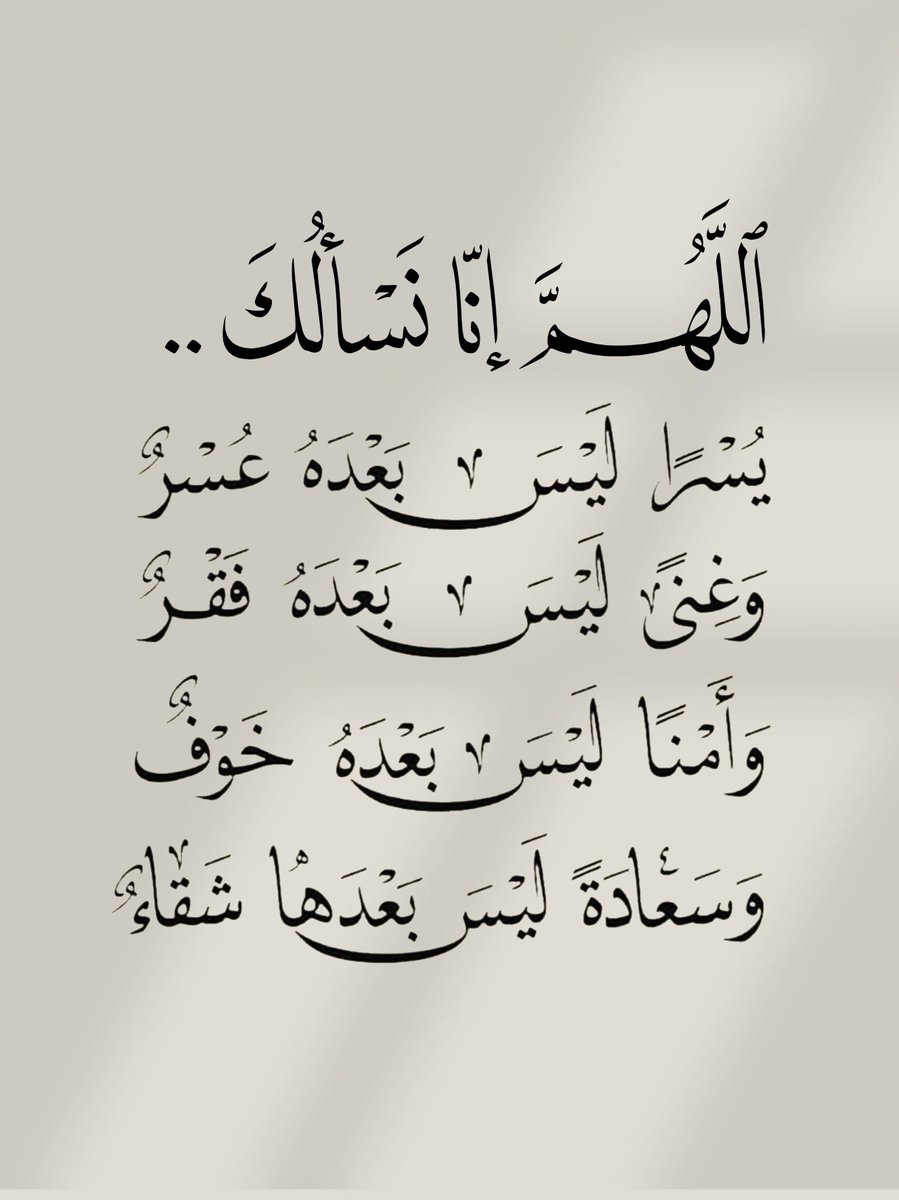 ٱللَّهُمَّ إِنّا نَسْأَلُكَ ..
يُسْرًا لَيْسَ بَعْدَهُ عُسْرٌ
وَغِنىً لَيْسَ بَعْدَهُ فَقْرٌ
وَأَمْنًا لَيْسَ بَعْدَهُ خَوْفٌ
وَسَعادَةً لَيْسَ بَعْدَها شَقاءٌ